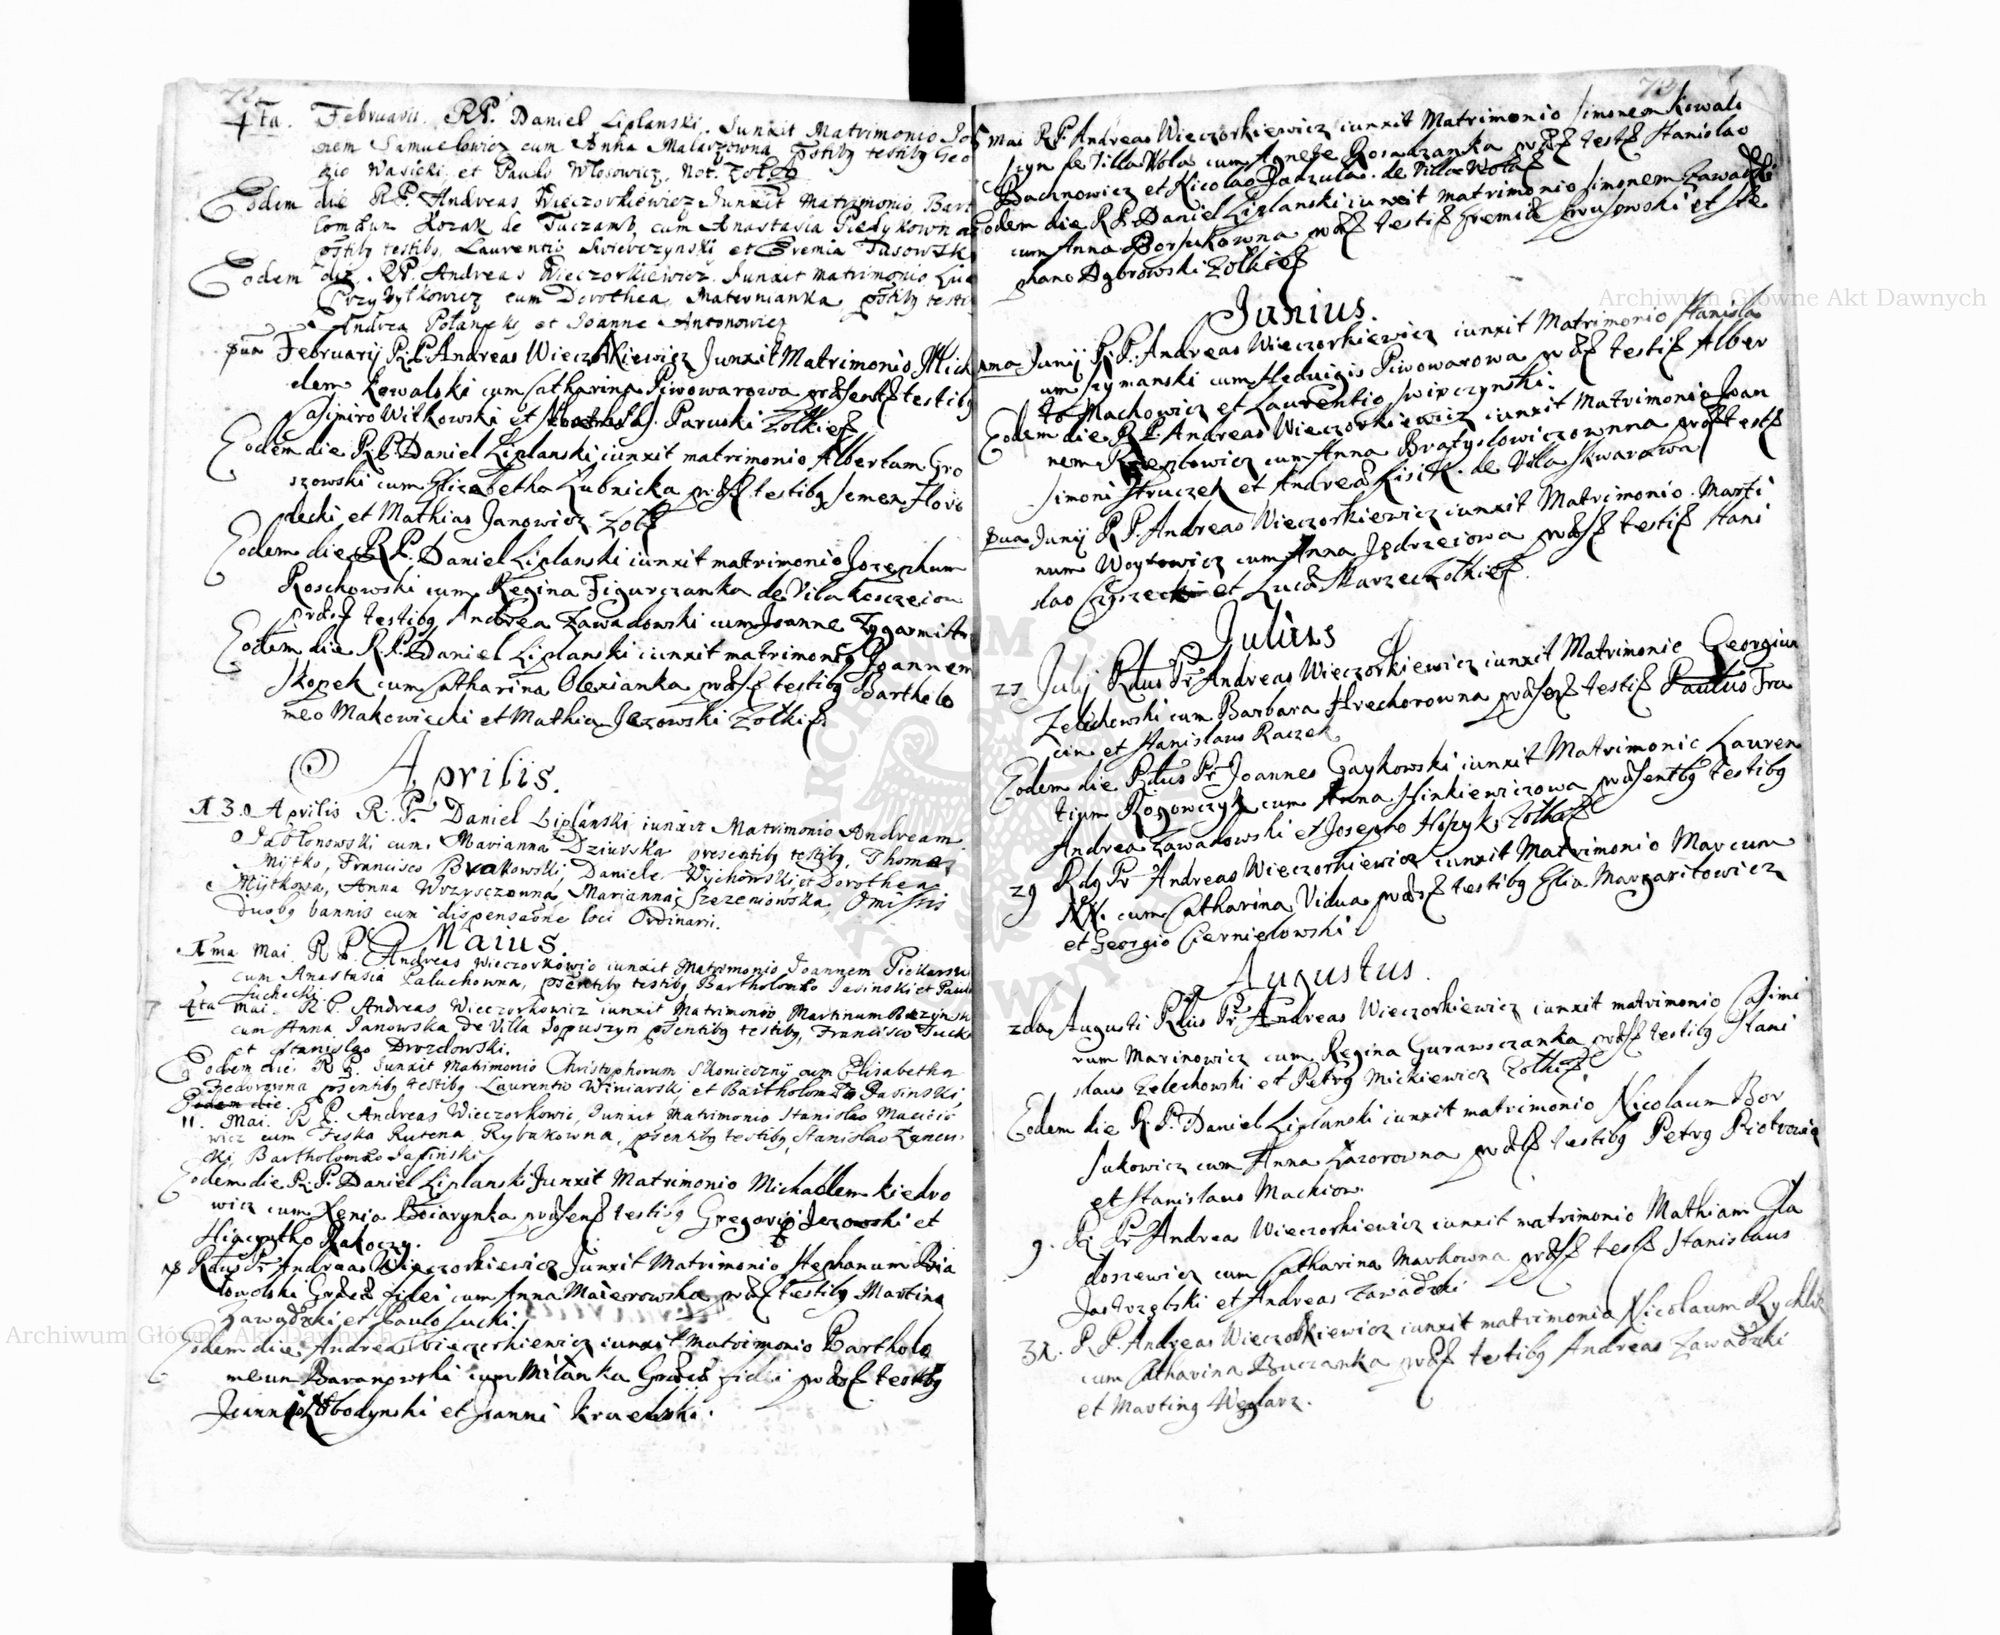 72
4ta. Februarii. R.P. Daniel Liplanski. Junxit Matrimonio Jo
nem Samuelowicz cum Anna Malarzowna pstiby testiby Geo
gio Wasicki et Paulo Włosowicz, Not. Zol
Eodem die R.P. Andreas Wieczorkiewicz Junxit Matrimonio Bart
lomeum Kozak de Tuczamb, cum Anastasia Piedykowna
pstiby testiby, Laurentio Swierczynski et Eremia Tusowsk
Eodem die R.P. Andreas Wieczorkiewicz. Junxit matrimonio Luc
Przybytkowicz cum Dorothea Maternianka pstiby testi
Andrea Polanski et Joanne Antonowicz
Februarij R.P. Andreas Wieczorkiewicz Junxit Matrimonio Mich
elem Kowalski cum Catharina Piwowarowa præsentib testiby
Casimiro Witkowski et Paruski Zolkief
Eodem die R.P. Daniel Liplanski iunxit matrimonio Albertum Gro
szowski cum Elizabetha Lubnicka testiby Semen Horo
decki et Mathias Janowicz Zolk
Eodem die R.P. Daniel Liplanski iunxit matrimonio Josephum
Roschowski cum Regina Figurczanka de Vila
testiby Andrea Zawadowski cum Joanne
Eodem die R.P. Daniel Liplanski iunxit matrimonio Joannem
Skopek cum Catharina Olexianka testiby Bartholo
meo Makowiecki et Mathia Jezowski Zolkief
Aprilis.
13. Aprilis R. P. Daniel Liplanski iunxit Matrimonio Andream
Jabłonowski cum Marianna Dziurska presentiby testiby, Thoma
Mijtko, Francisco Brakowski, Daniele Wychowski, et Dorothea
Mijtkowa, Anna Wrzysczonna, Marianna Szczeniowska, Omissis
duoby bannis cum dispensaone loci Ordinarii.
Maius.
1ma Mai R P. Andreas Wieczorkowic iunxit Matrimonio Joannem Piekarsk
cum Anastasia Paluchowna, psentiby testiby Bartholomæo Jasinski et Paulo
Suchecki.
4ta Mai. R P. Andreas Wieczorkowicz iunxit Matrimonio Martinum
cum Anna Janowska de Villa Sopuszyn psentiby testiby, Francisco Tuck
et Stanislao Drozdowski.
Eodem die. R P. Junxit Matrimonio Christophorum Skonieczny cum Elisabetha
Fedorowna psentiby testiby Laurentio Winiarski et Bartholomæo Jasinski,
Eodem die.
11. Mai. R P. Andreas Wieczorkowic, Junxit Matrimonio Stanislao Macieio
wicz cum Feska Rutena Rybakowna, psentiby testiby, Stanislao
ski, Bartholomæo Jasinski
Eodem die R.P. Daniel Liplanski Junxit Matrimonio Michaelem Kiedro
wicz cum Xenia Boiarynka præsent testiby Gregorio Jezowski et
Hiacyntho Rakoczy.
18 Rdus Pr Andreas Wieczorkiewicz Junxit Matrimonio Stephanum Bia
łowolski Græci fidei cum Anna Maierowska testiby Martino
Zawadzki et Paulo Sucki.
Eodem die Andreas Wieczorkiewicz iunxit Matrimonio Bartholo
meum Baranowski cum Milanka Græci fidei testiby
Joanni Słobodynski et Joanni
73
Mai R.P. Andreas Wieczorkiewicz iunxit Matrimonio Simonem Kowal
szyn de Villa Vola cum Agnete Rosadzanka test Stanislao
Bachnowicz et Nicolao de Villa Vola
Eodem die R.P. Daniel Liplanski iunxit matrimonio Simonem Zawadzki
cum Anna Borsukowna testib Eremia et Ste
phano Dąbrowski Zolkief
Junius.
1ma Junij R.P. Andreas Wieczorkiewicz iunxit Matrimonio Stanisla
um Szymanski cum Hedvigis Piwowarowa testib Alber
to Machowicz et Laurentio Swirczynski.
Eodem die R P. Andreas Wieczorkiewicz iunxit Matrimonio Joan
nem cum Anna Bratyslowiczownna test
Simoni Struczek et Andrea Lisik. de Villa Skwarzawa
Junij R P. Andreas Wieczorkiewicz iunxit Matrimonio Marti
num Woytowicz cum Anna Jędrzeiowa testib Stani
slao et Luca Marzec Zolkief.
Julius
27 Julij Rdus Pr Andreas Wieczorkiewicz iunxit Matrimonio Georgium
Zelichowski cum Barbara Hrechorowna præsent testib Paulus Fra
cin et Stanislaus Raczek
Eodem die Rdus Pr Joannes Gaykowski iunxit Matrimonio Lauren
tium Rogowczyk cum Anna Hinkiewiczowa præsentiby testiby
Andrea Zawadowski et Josepho
29 Rdg Pr Andreas Wieczorkiewicz iunxit Matrimonio Marcum
NN. cum Catharina Vidua testiby Elia Margaritowicz
et Georgio Czernielowski.
Augustus.
2da Augusti Rdus Pr Andreas Wieczorkiewicz iunxit matrimonio Casimi
rum Marinowicz cum Regina Gurawsczanka testiby Stani
slaus Zelechowski et Petrg Mickiewicz Zolkief
Eodem die R.P. Daniel Liplanski iunxit matrimonio Nicolaum Bor
sukowicz cum Anna Lazorowna testiby Petrg Piotrowicz
et Stanislaus Machiow
9. R. Pr Andreas Wieczorkiewicz iunxit matrimonio Mathiam Gla
doszewicz cum Catharina Markowna test Stanislaus
Jastrzębski et Andreas Zawadzki
31. R P. Andreas Wieczorkiewicz iunxit matrimonia Nicolaum Rychlik
cum Catharina Buczanka testiby Andreas Zawadzki
et Marting Węglarz.
Archiwum Główne Akt Dawnych
Archiwum Główne Akt Dawnych